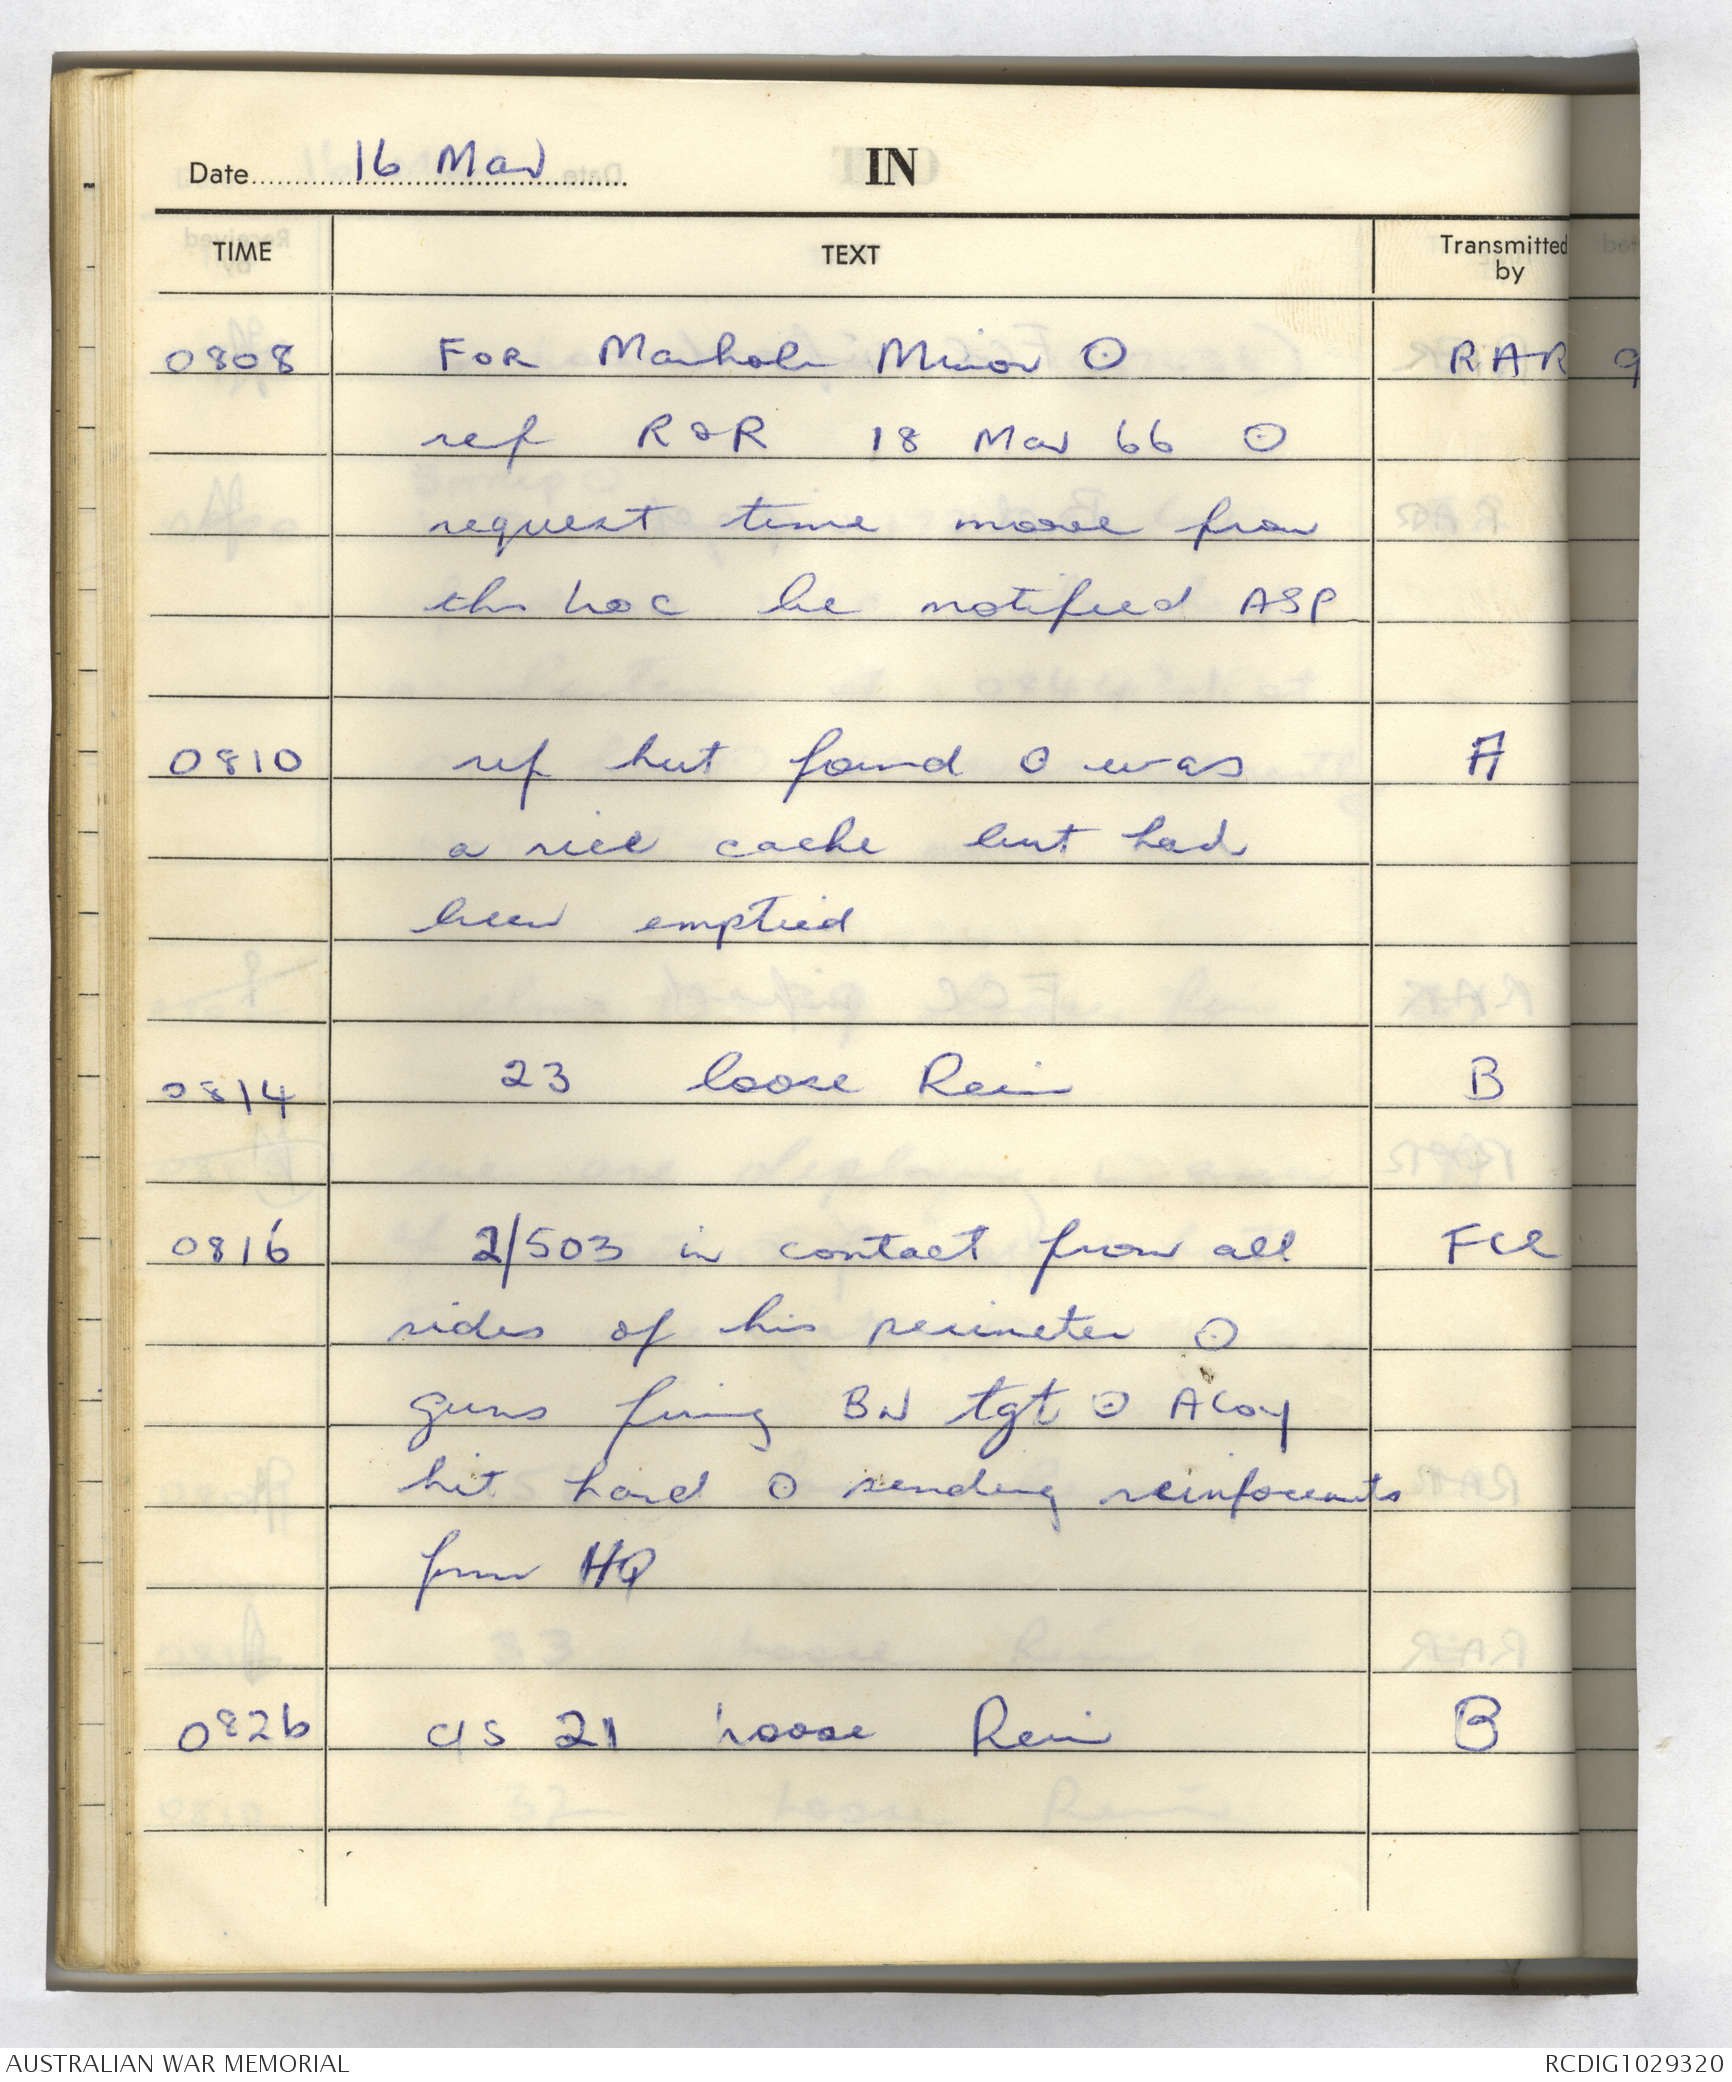 Date 16 Mar IN
TIME TEXT Transmitted by
0808 FOR Manhole Minor ⊙ RAR 9
ref R&R 18 Mar 66 ⊙
request time move from
this Loc be notified ASP
0810 ref hut found ⊙ was A
a rice cache but had
been emptied
0814 23 loose Rein B
0816 2/503 in contact from all FCL
sides of his perimeter ⊙
guns firing BN tgt ⊙ A Coy
hit hard ⊙ sending reinforcemts
from HQ
0826 C/S 21 Loose Rein B
AUSTRALIAN WAR MEMORIAL RCDIG1029320